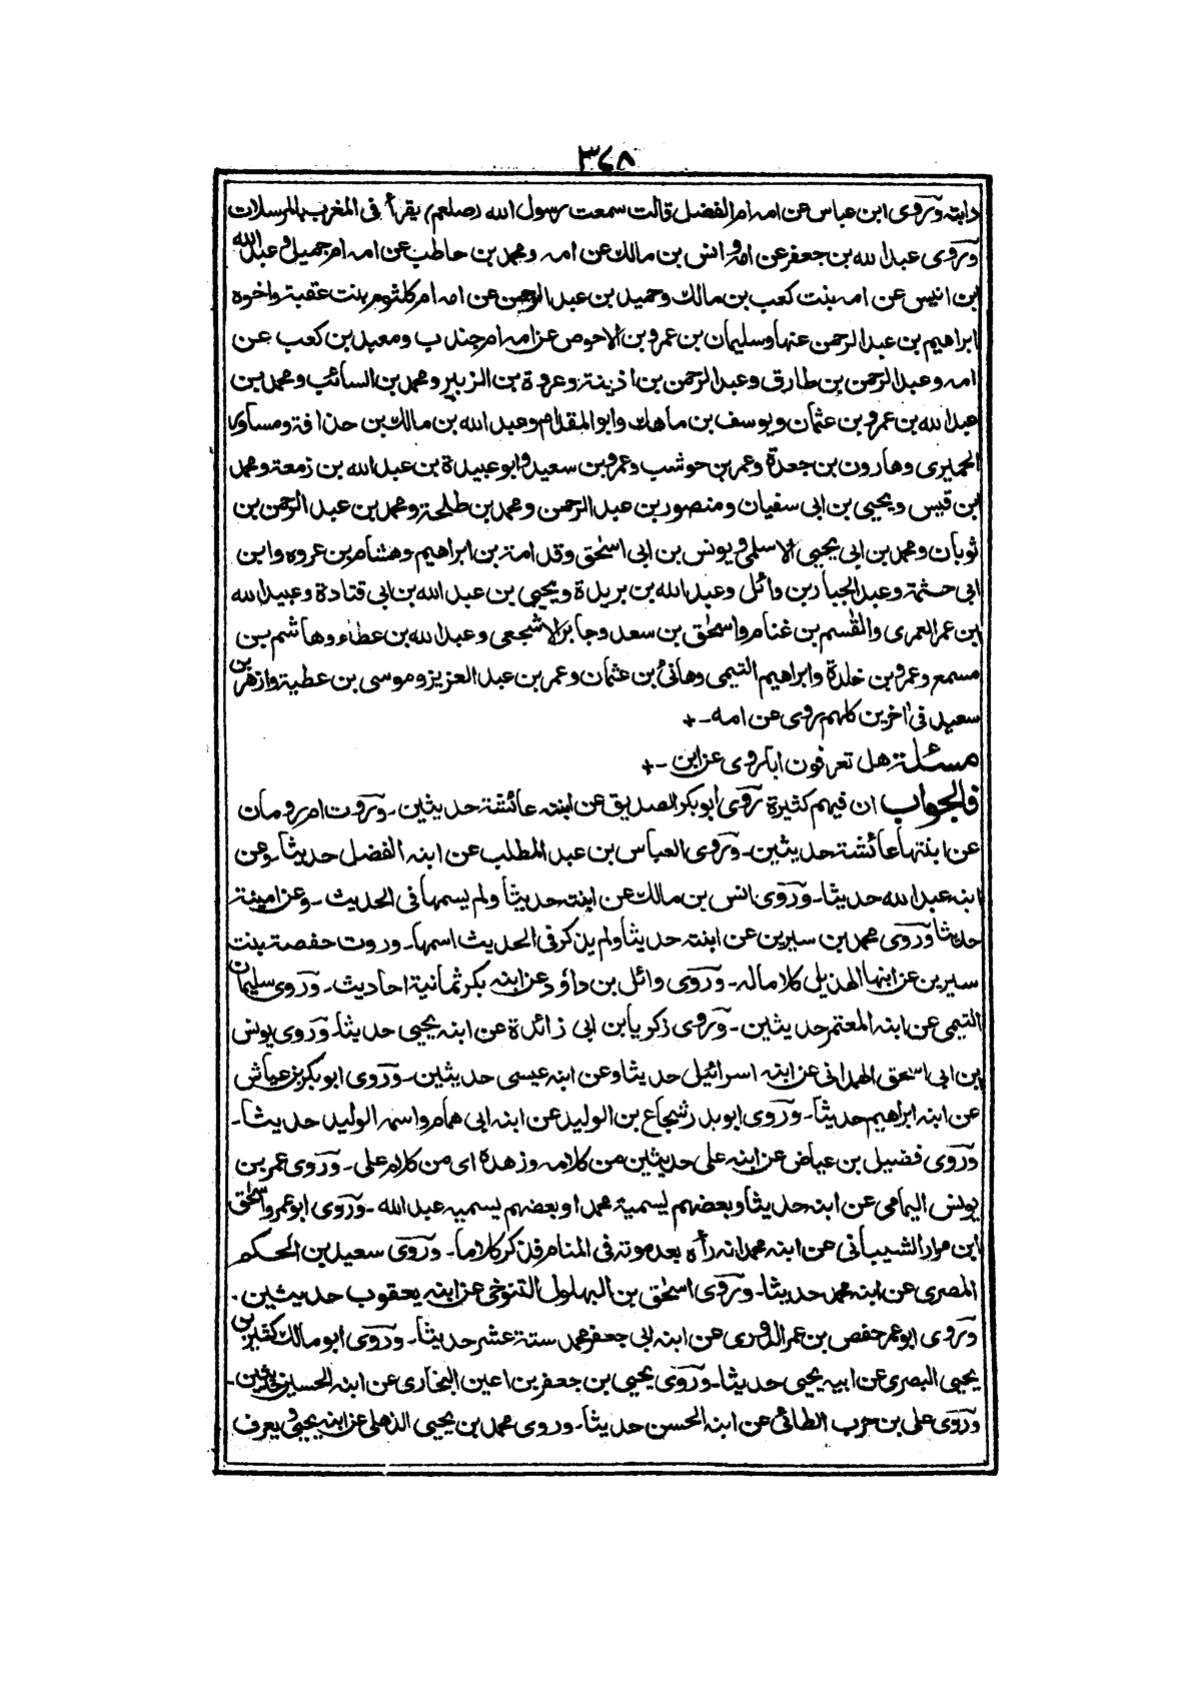 ٣٤٨
دابته وروى ابن عباس عن امه ام الفضل قالت سمعت رسول الله (صلعم) يقرأ فى المغرب بالمرسلات
وروى عبد الله بن جعفر عن امه وانس بن مالك عن امه ومحمد بن حاطب عن امه ام جميل وعبد الله
بن انيس عن امه بنت كعب بن مالك وحميد بن عبد الرحمن عن امه ام كلثوم بنت عقبة واخوه
ابراهيم بن عبد الرحمن عنها وسليمان بن عمرو بن الاحوص عن امه ام جندب ومعبد بن كعب عن
امه وعبد الرحمن بن طارق وعبد الرحمن بن اذينة وعروة بن الزبير ومحمد بن السائب ومحمد بن
عبد الله بن عمرو بن عثمان ويوسف بن ماهك وابو المقدام وعبد الله بن مالك بن حذافة ومساور
الحميرى وهارون بن جعدة وعمر بن حوشب وعمرو بن سعيد وابو عبيدة بن عبد الله بن زمعة ومحمد
بن قيس ويحيى بن ابى سفيان ومنصور بن عبد الرحمن ومحمد بن طلحة ومحمد بن عبد الرحمن بن
ثوبان ومحمد بن ابى يحيى الاسلمى ويونس بن ابى اسحٰق وقدامة بن ابراهيم وهشام بن عروه وابن
ابى حثمة وعبد الجبار بن وائل وعبد الله بن بريدة ويحيى بن عبد الله بن ابى قتادة وعبيد الله
ابن عمر العمرى والقٰسم بن غنام واسحٰق بن سعد وجابر الاشجعى وعبد الله بن عطاء وهاشم بن
مسمع وعمرو بن خلدة وابراهيم التيمى وهانئ بن عثمان وعمر بن عبد العزيز وموسى بن عطية وازهر بن
سعيد فى اٰخرين كلهم روى عن امه -+
مسئلة هل تعرفون ابا روى عن ابن -+
فالجواب ان فيهم كثيرة روى ابو بكر الصديق عن ابنته عائشة حديثين - وروت ام رومان
عن ابنتها عائشة حديثين - وروى العباس بن عبد المطلب عن ابنه الفضل حديثا - وعن
ابنه عبد الله حديثا - وروى انس بن مالك عن ابنته حديثا ولم يسمها فى الحديث - وعن امينة
حديثا وروى محمد بن سيرين عن ابنته حديثا ولم يذكر فى الحديث اسمها - وروت حفصة بنت
سيرين عن ابنها الهذيل كلاما له - وروى وائل بن داؤد عن ابنه بكر ثمانية احاديث - وروى سليمان
التيمى عن ابنه المعتمر حديثين - وروى زكريا بن ابى زائدة عن ابنه يحيى حديثا - وروى يونس
بن ابى اسحق الهمدانى عن ابنه اسرائيل حديثا وعن ابنه عيسى حديثين - وروى ابو بكر بن عياش
عن ابنه ابراهيم حديثا - وروى ابو بدر شجاع بن الوليد عن ابنه ابى همام واسمه الوليد حديثا -
وروى فضيل بن عياض عن ابنه على حديثين من كلامه وزهده اى من كلام على - وروى عمر بن
يونس اليمامى عن ابنه حديثا وبعضهم يسمية محمدا وبعضهم يسميه عبد الله - وروى ابو عمرو اسحٰق
ابن مرار الشيبانى عن ابنه محمد انه رأه بعد موته فى المنام فذكر كلاما - وروى سعيد بن الحكم
المصرى عن ابنه محمد حديثا - وروى اسحٰق بن البهلول التنوخى عن ابنه يعقوب حديثين .
وروى ابو عمر حفص بن عمر الدورى عن ابنه ابى جعفر محمد ستة عشر حديثا - وروى ابو مالك كثير بن
يحيى البصرى عن ابيه يحيى حديثا - وروى يحيى بن جعفر بن اعين البخارى عن ابنه الحسين حديثين -
وروى على بن حرب الطائى عن ابنه الحسن حديثا - وروى محمد بن يحيى الذهلى عن ابنه يحيى ويعرف